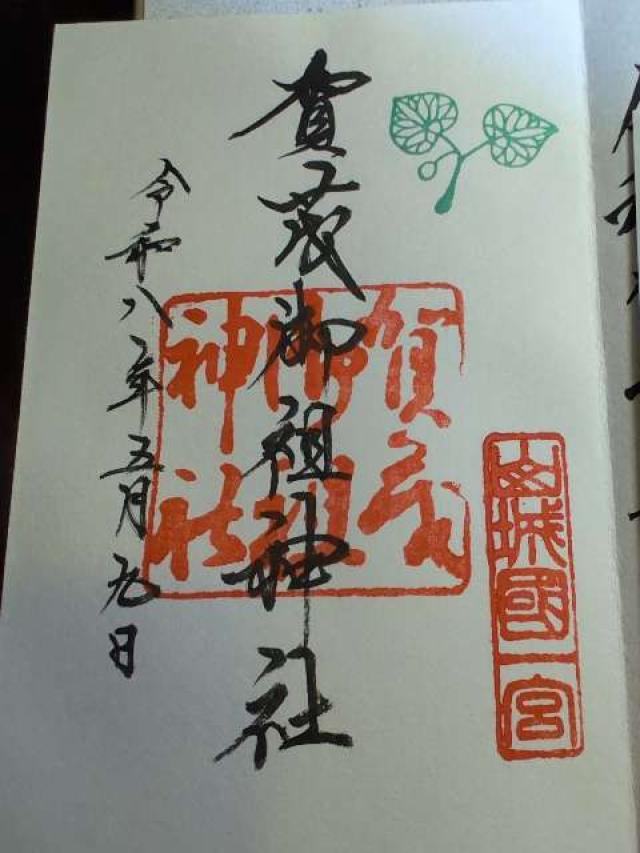 山城國一宮
賀茂御祖神社
賀茂
御祖
神社
令和八年五月九日